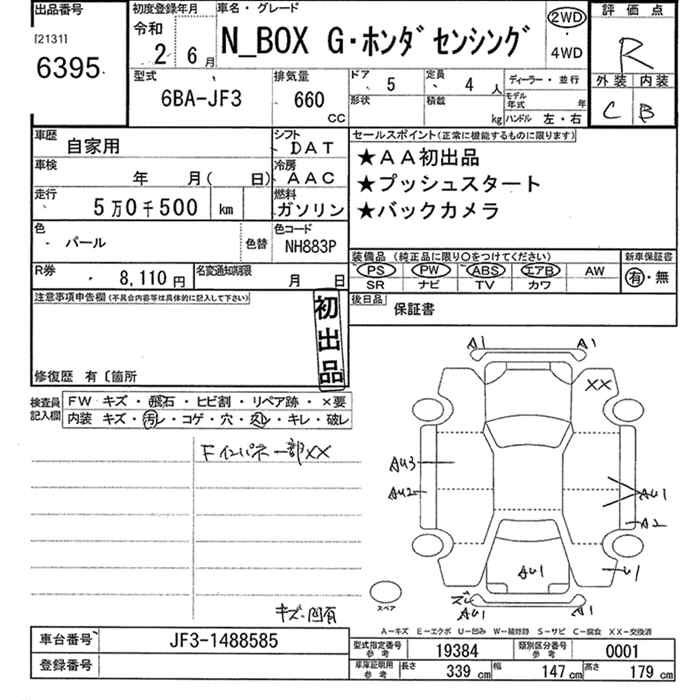 出品番号
[2131]
6395
初度登録年月
令和
2 年 6 月
車名・グレード
N_BOX G・ホンダセンシング
2WD
・
4WD
評価点
R
外装 内装
C B
型式
6BA-JF3
排気量
660 CC
ドア 5
定員 4 人
形状
積載 kg
ディーラー・並行
モデル年式 年
ハンドル 左・右
車歴 自家用
シフト DAT
車検 年 月( 日)
冷房 AAC
走行 5万0千500 km
燃料 ガソリン
色 パール
色替
色コード NH883P
R券 8,110円
名変通知期限 月 日
セールスポイント(正常に機能するものに限ります)
★AA初出品
★プッシュスタート
★バックカメラ
装備品(純正品に限り○をつけてください)
新車保証書
PS PW ABS エアB AW
SR ナビ TV カワ
有・無
後日品 保証書
注意事項申告欄(不具合内容等は具体的に記入して下さい)
初出品
修復歴 有〔箇所
検査員記入欄
FW キズ・飛石・ヒビ割・リペア跡・×要
内装 キズ・汚レ・コゲ・穴・スレ・キレ・破レ
Fインパネ一部XX
キズ・凹有
A1 A1
XX
AU3
AU2
AU1
A2
U1
AU1
AU1 A1
スペア
A-キズ E-エクボ U-凹み W-補修跡 S-サビ C-腐食 XX-交換済
車台番号 JF3-1488585
登録番号
型式指定番号 参考 19384
類別区分番号 参考 0001
車庫証明用 参考 長さ 339 cm 幅 147 cm 高さ 179 cm